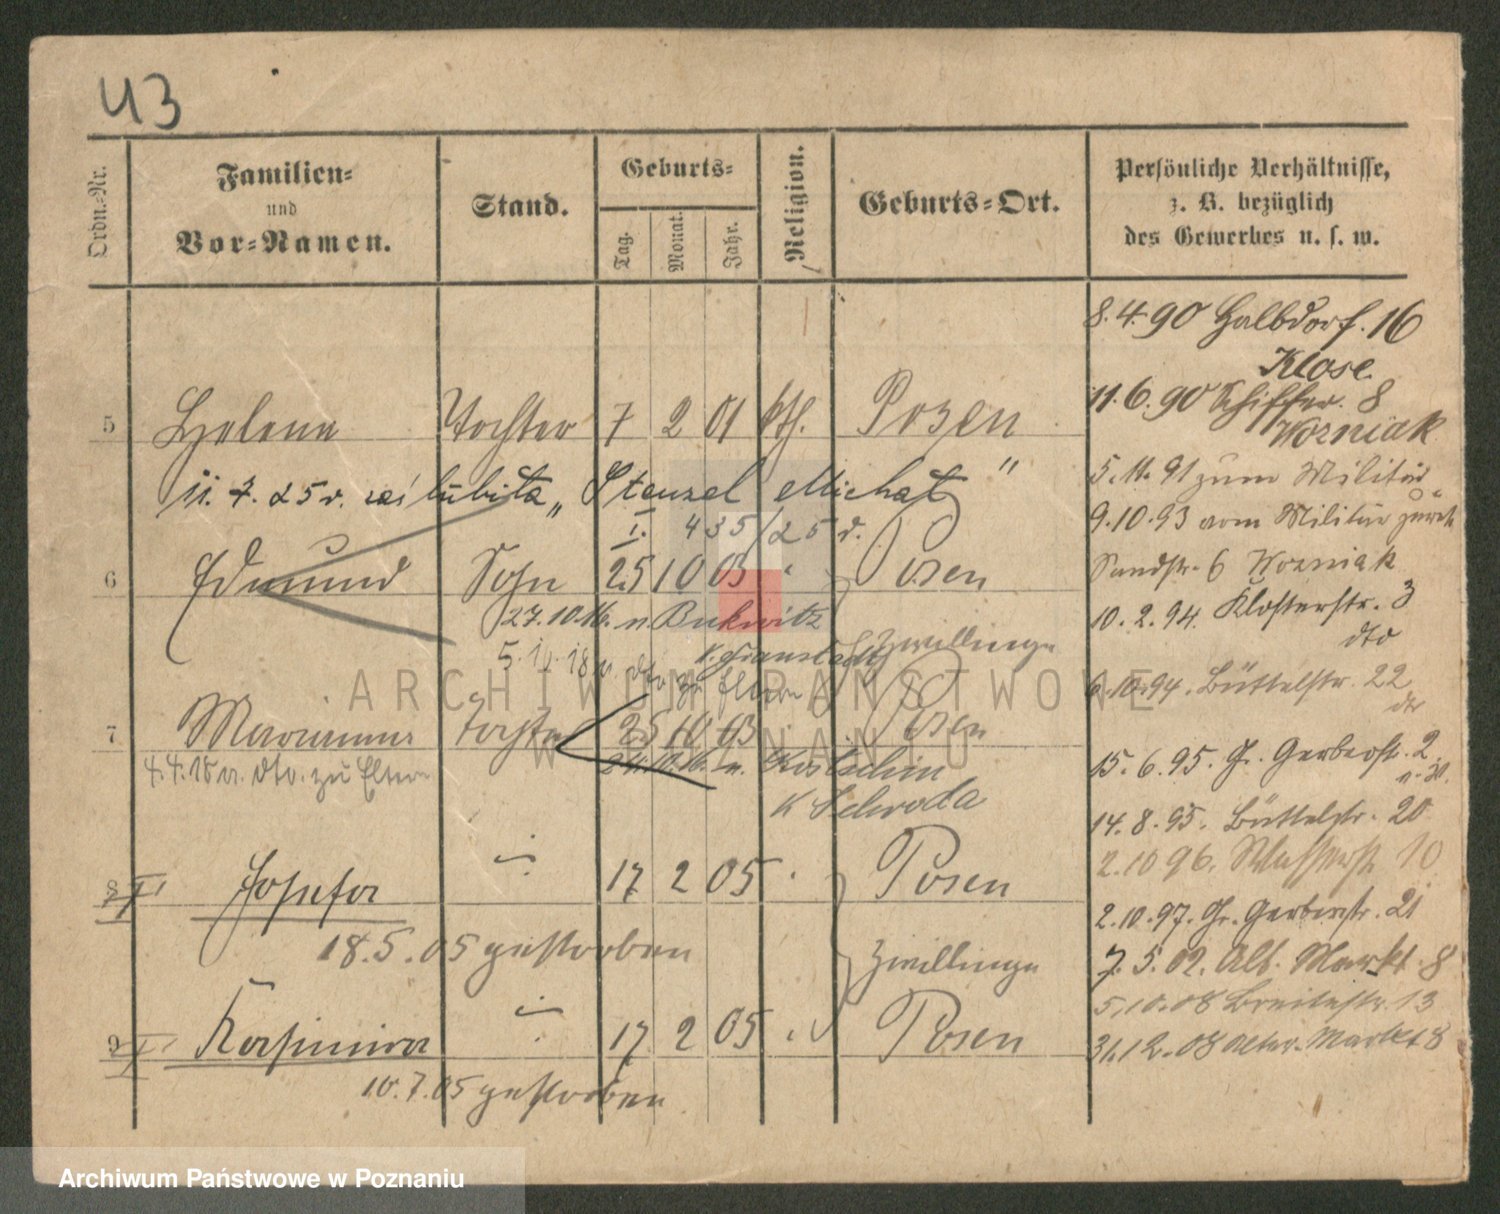 43
Ordn.-Nr.
Familien-
und
Vor-Namen.
Stand.
Geburts-
Tag.
Monat.
Jahr.
Religion.
Geburts-Ort.
Persönliche Verhältnisse,
z. B. bezüglich
des Gewerbes u. s. w.
8.4.90 Halbdorf. 16
Klose.
11.6.90 Schifferr. 8
Worniak
5 Helena Tochter 7 2 01 kth. Posen
5.11.91 zum Militär
11. 7. 25 r. zaślubiła „Stenzel Michał"
I. 435/25 r.
9.10.93 vom Militär zurück
6 Edmund Sohn 25 10 03 " Posen
Sandstr. 6 Worniak
27.10.16. n. Bukwitz
10. 2. 94. Klosterstr. 3
dto
Zwillinge
K. Fraustadt
5. 10. 18 v. dto zu Eltern
6.10.94. Büttelstr. 22
7 Marianna Tochter 25 10 03 Posen
4.4.18 v. dto. zu Eltern
n. Kostschin
K Schroda
15. 6. 95. Gr. Gerberstr. 2
14. 8. 95. Büttelstr. 20
2.10 96. 10
8 Josefa 17 2 05 Posen
2.10.97. Gr. Gerberstr. 21
18.5.05 gestorben
Zwillinge
7. 5. 02. Alt. Markt. 8
5.10.08 Breitestr. 13
9 Kasimira 17 2 05 Posen
31.12.08 Alter Markt 8
10.7.05 gestorben
ARCHIWUM PAŃSTWOWE
W POZNANIU
Archiwum Państwowe w Poznaniu